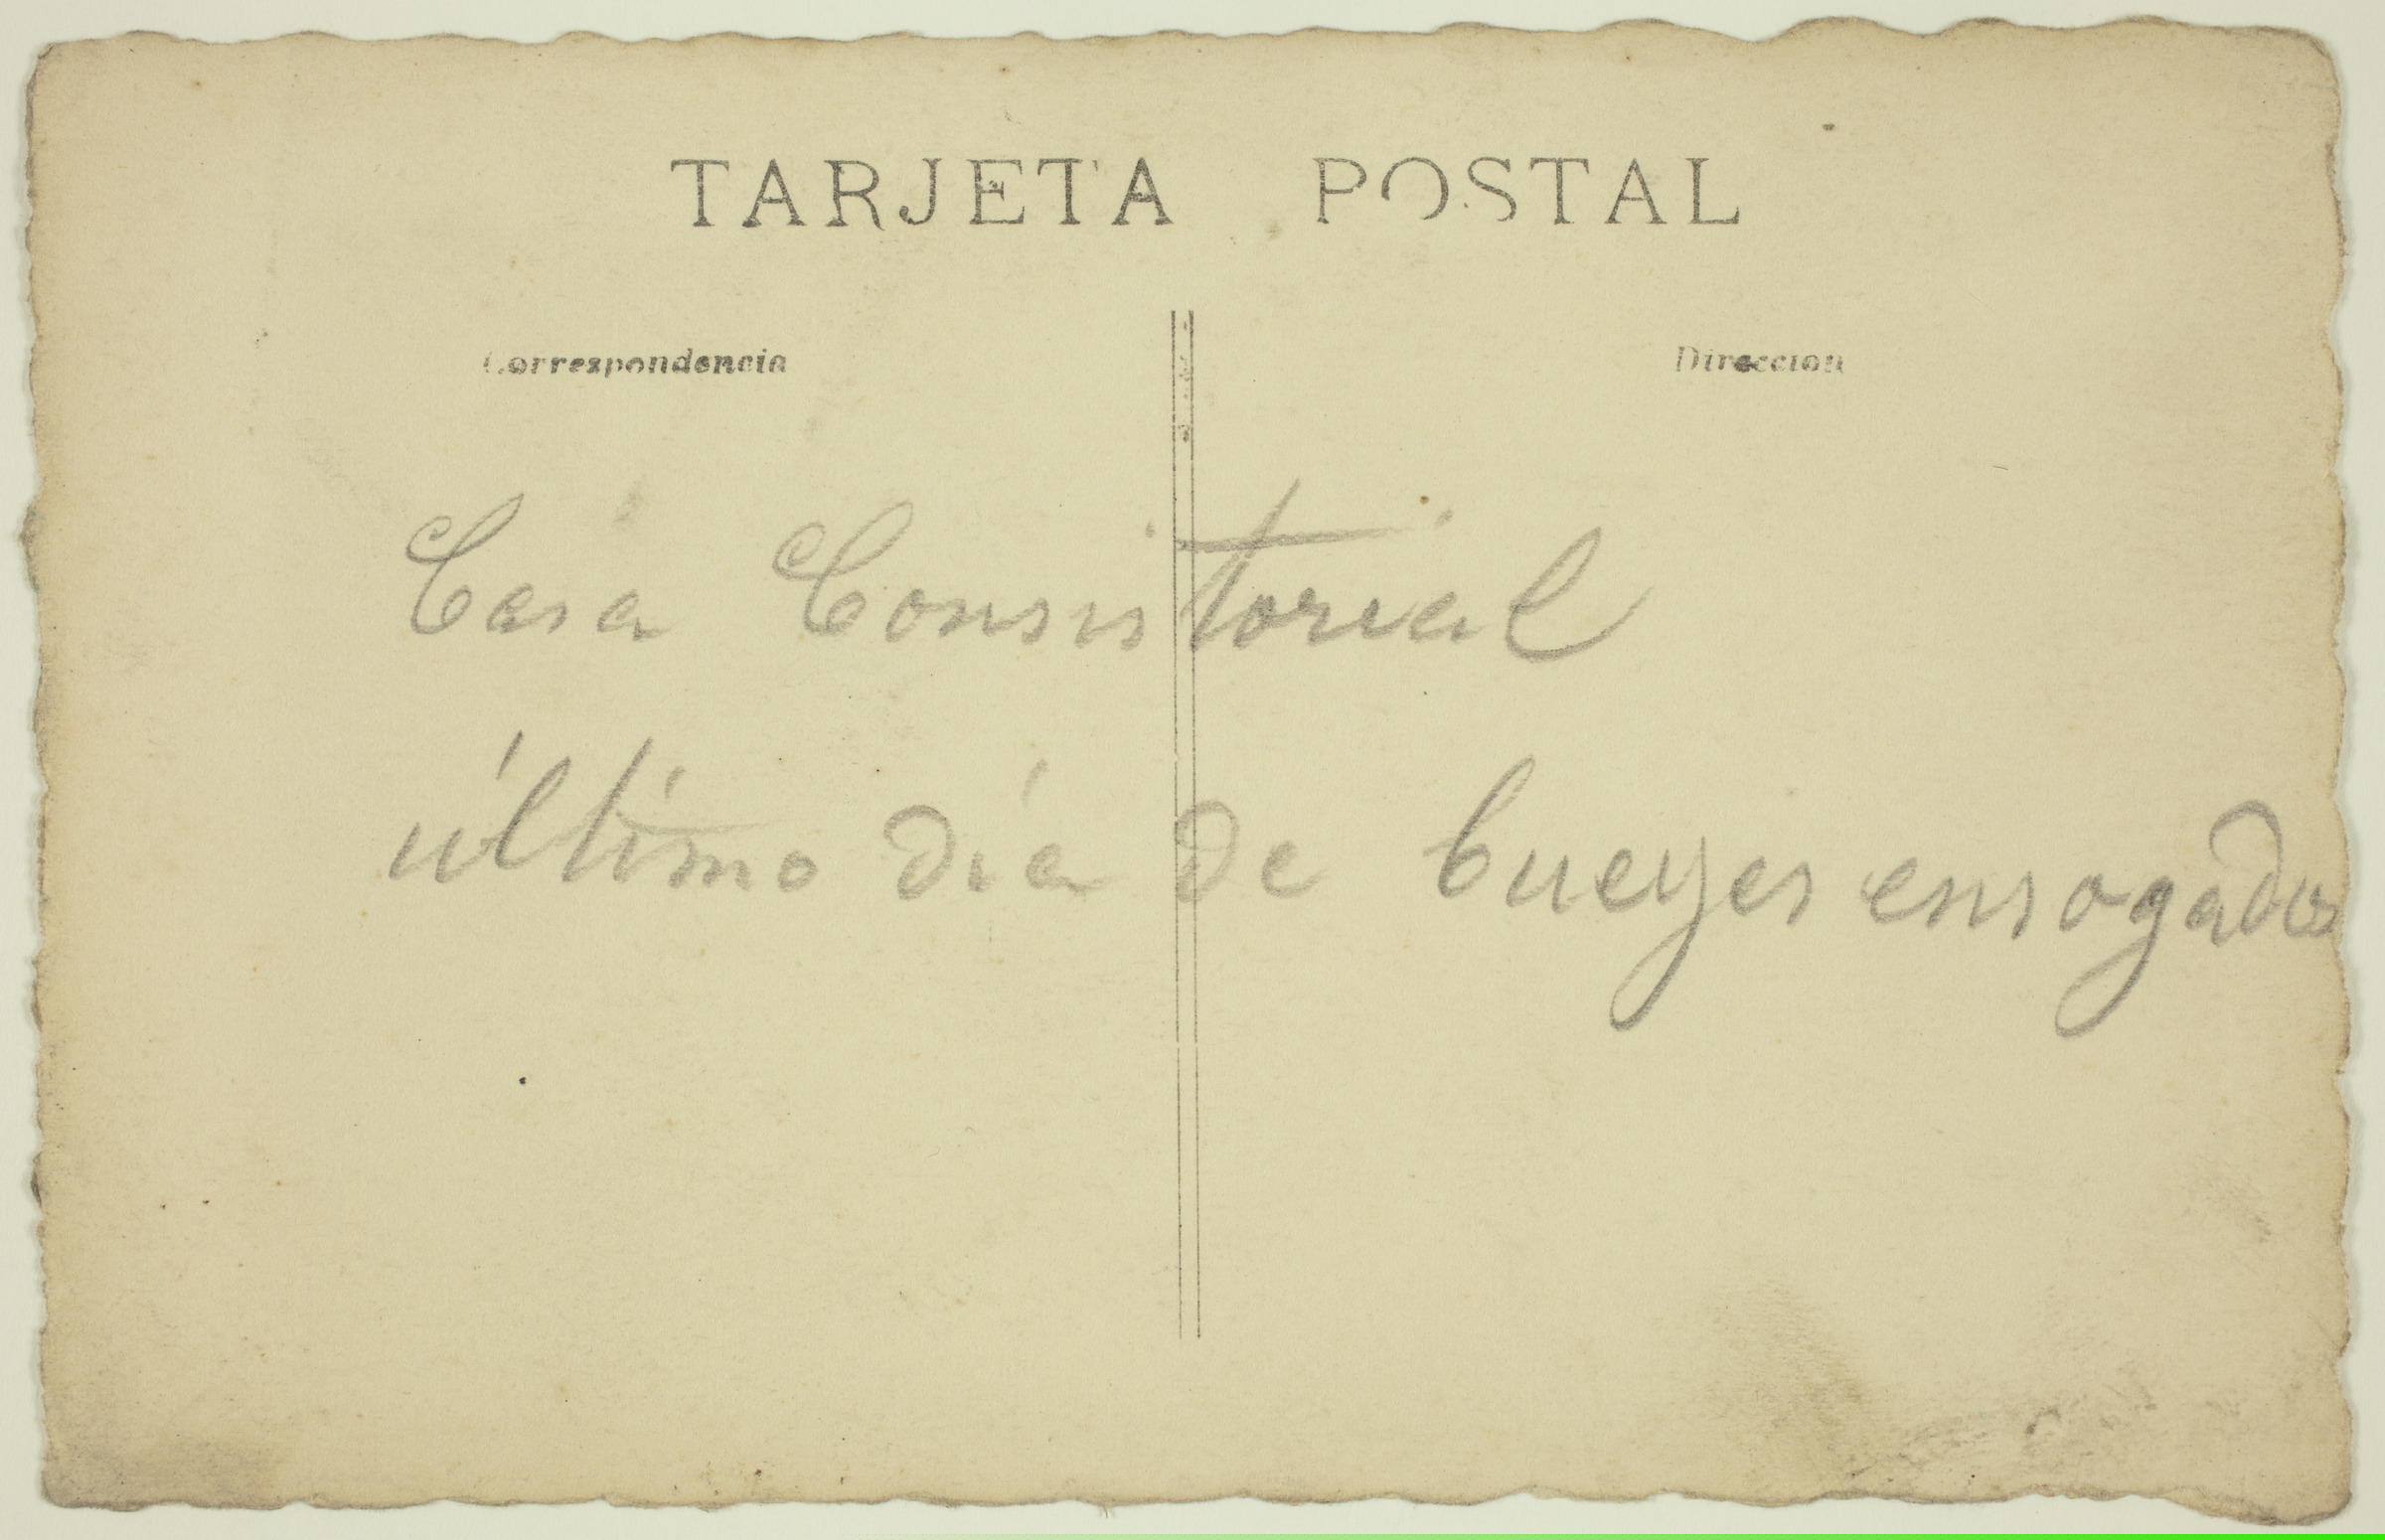 TARJETA POSTAL
Correspondencia
Direccion
Casa Consistorial
último día de bueyes ensogados